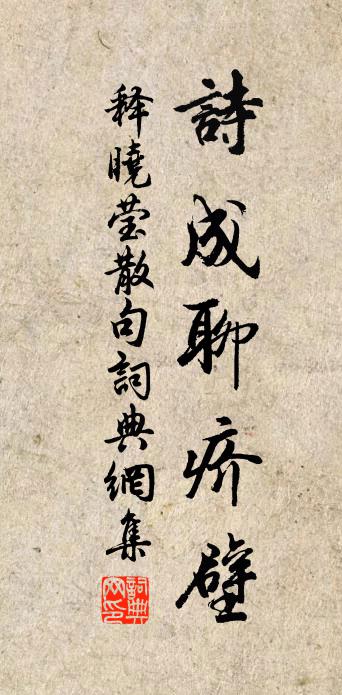 詩成聊疥壁
释曉莹散句詞典網集
詞典网印